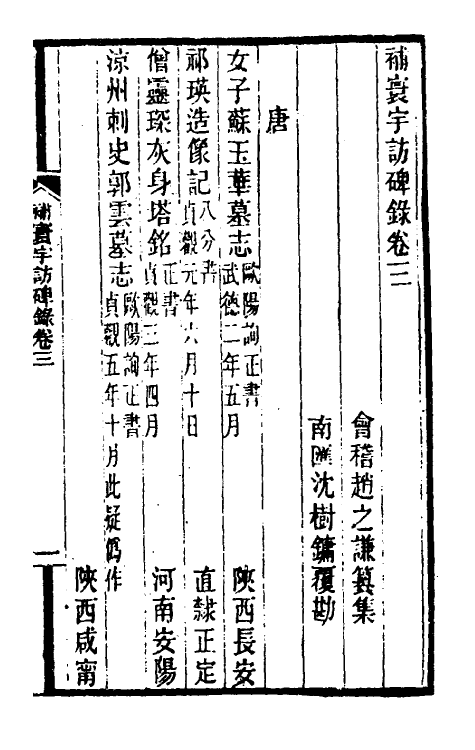 補寰宇訪碑錄卷三
會稽趙之謙篡集
南匯沈樹鏞覆勘
唐
女子蘇玉華墓志 歐陽詢正書 武德二年五月 陝西長安
祁瑛造像記 八分書 貞觀元年六月十日 直隸正定
僧靈琛灰身塔銘 正書 貞觀三年四月 河南安陽
涼州刺史郭雲墓志 歐陽詢正書 貞觀五年十月此疑僞作
陝西咸甯
補寰宇訪碑錄卷三
一